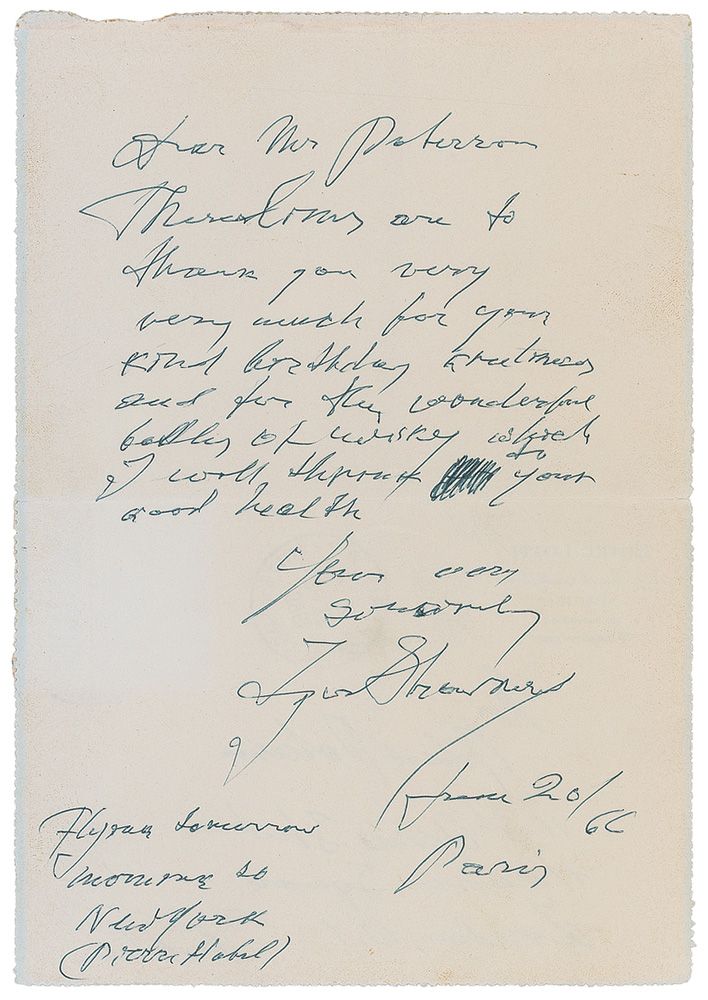 Dear Mr Paterson
These lines are to
thank you very
very much for your
kind birthday greetings
and for the wonderful
bottles of wisky which
I will to your
good health
Yours very
sincerely
Igor Strawinsky
June 20/66
Paris
Flying tomorrow
morning to
New York
(Pierre Hotel)